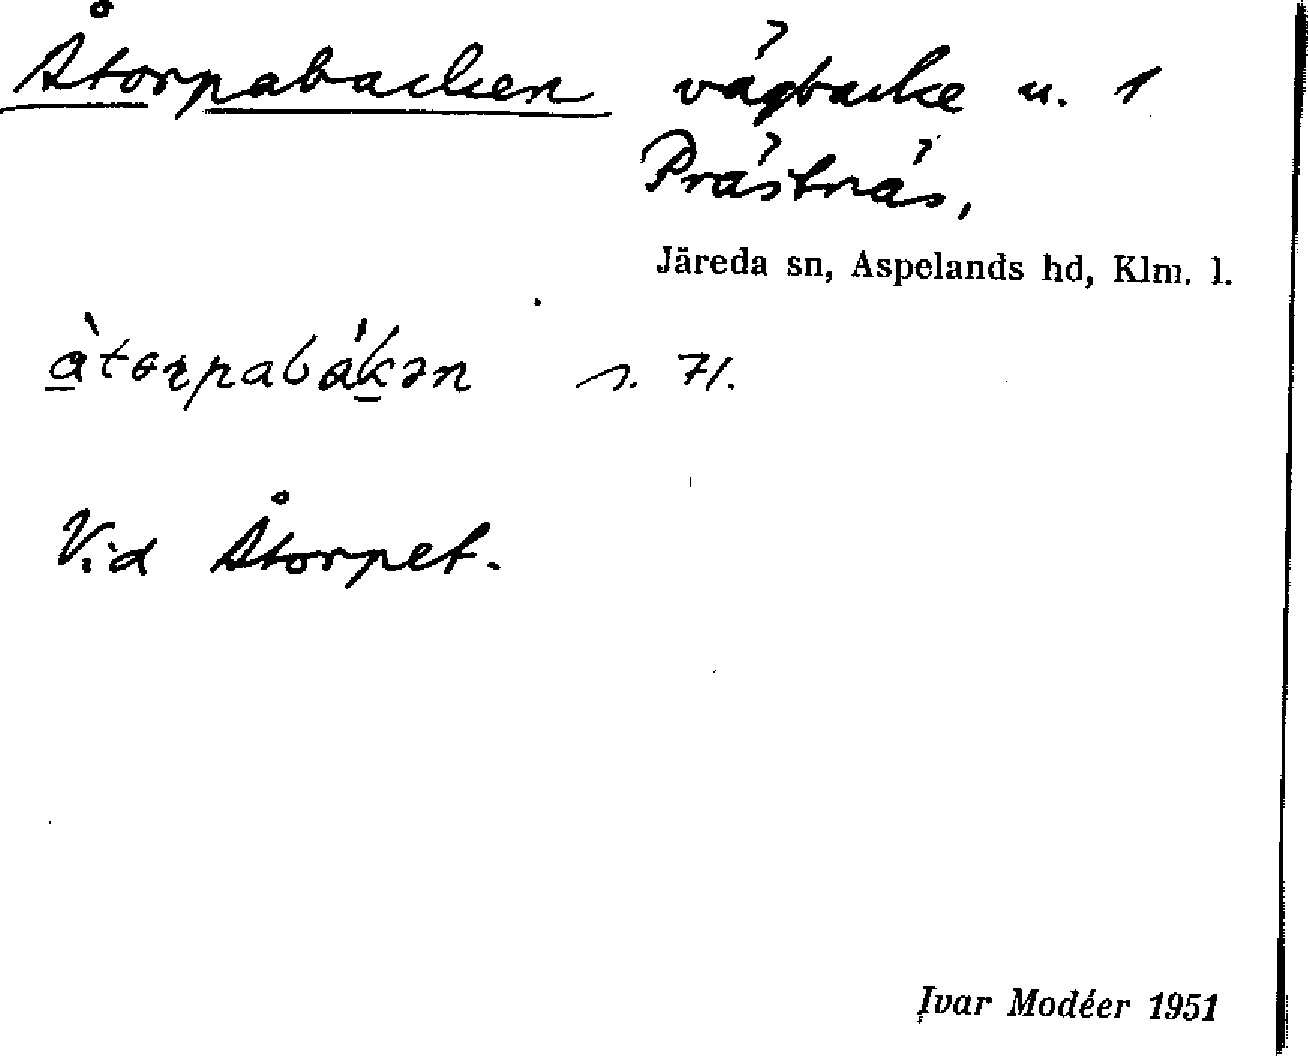 Åtorpabacken vägbacke u. 1
Prästnäs,
Järeda sn, Aspelands hd, Klm. l.
s. 71.
Vid Åtorpet.
Ivar Modéer 1951